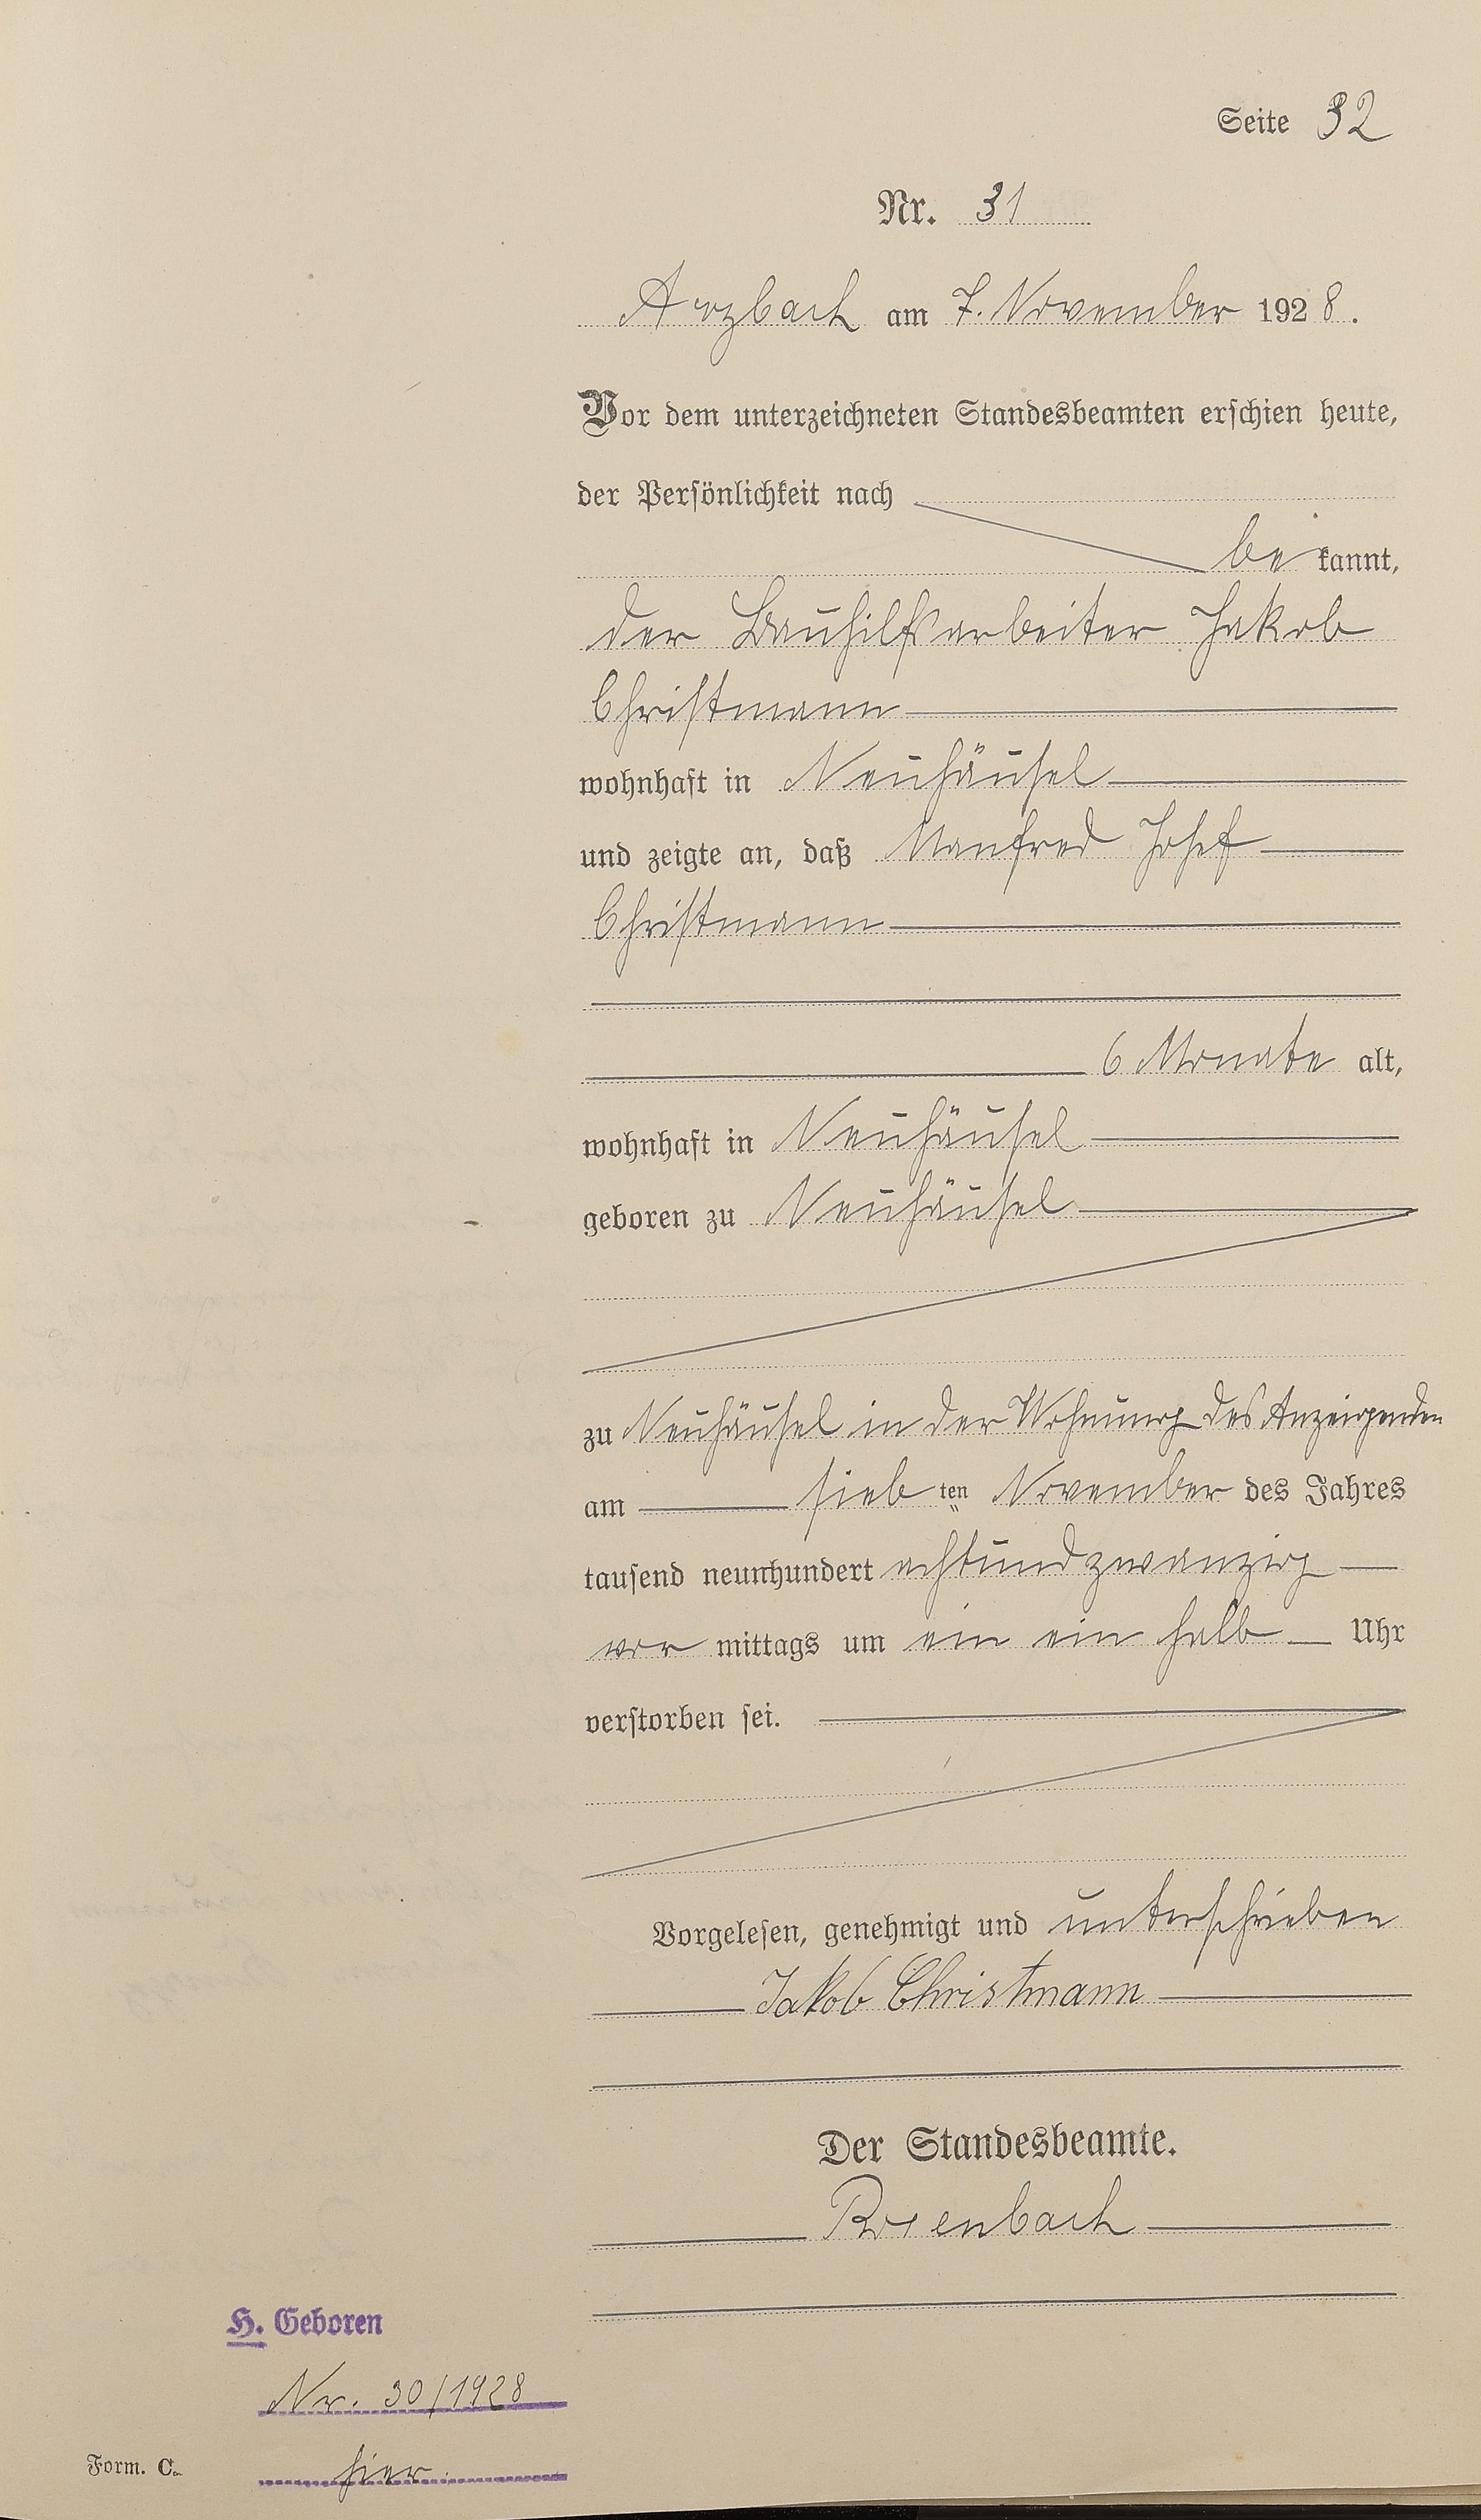 Seite 32
Nr. 31
Arzbach am 7. November 1928.
Vor dem unterzeichneten Standesbeamten erschien heute,
der Persönlichkeit nach
be kannt,
der Bauhilfsarbeiter Jakob
Christmann
wohnhaft in Neuhäusel
und zeigte an, daß Manfred Josef
Christmann
6 Monate alt,
wohnhaft in Neuhäusel
geboren zu Neuhäusel
zu Neuhäusel in der Wohnung des Anzeigenden
am sieb ten November des Jahres
tausend neunhundert achtundzwanzig
vor mittags um ein ein halb Uhr
verstorben sei.
Vorgelesen, genehmigt und unterschrieben
Jakob Christmann
Der Standesbeamte.
Rosenbach
H. Geboren
Nr. 30/1928
hier
Form. C.